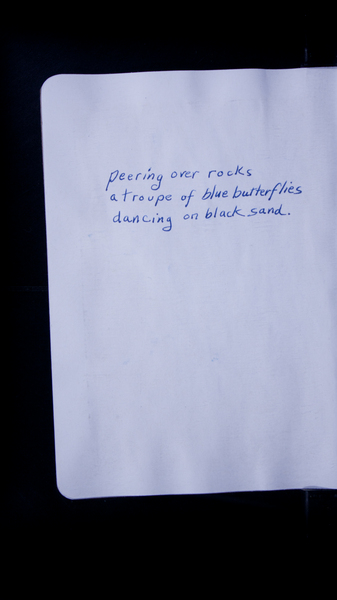 peering over rocks
a troupe of blue butterflies
dancing on black sand.